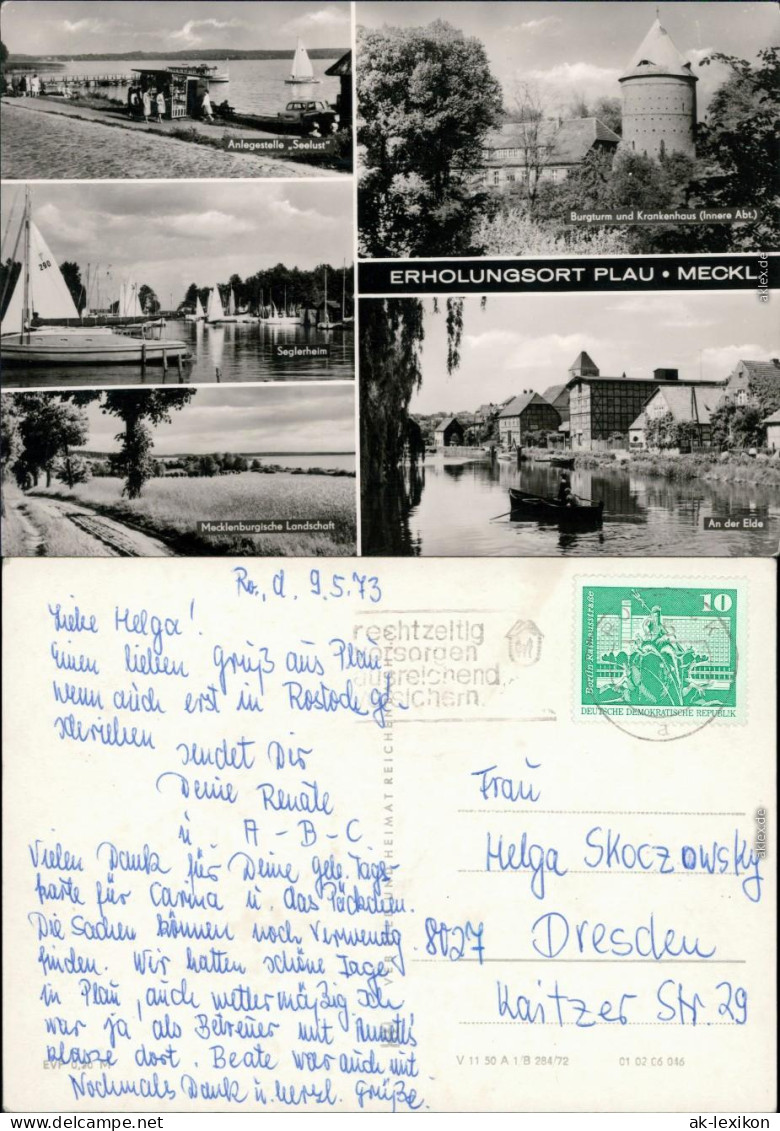 Anlegestelle „Seelust"
Burgturm und Krankenhaus (Innere Abt.)
ERHOLUNGSORT PLAU • MECKL.
Seglerheim
Mecklenburgische Landschaft
An der Elde
Ro., d. 9.5.73
Liebe Helga!
Einen lieben Gruß aus Plau
wenn auch erst in Rostock ge-
schrieben
sendet Dir
Deine Renate
u. A - B - C
Vielen Dank für Deine
karte für Carina u. das Päckchen.
Die Sachen können noch Verwendg.
finden. Wir hatten schöne Tage
in Plau, auch wettermäßig. Ich
war ja als Betreuer mit
klasse dort. Beate war auch mit
Nochmals Dank u. herzl. Grüße.
rechtzeitig
vorsorgen
ausreichend
versichern
10
Berlin-Rathausstraße
DEUTSCHE DEMOKRATISCHE REPUBLIK
Frau
Helga Skoczowsky
8027 Dresden
Kaitzer Str. 29
EVP 0,20 M
V 11 50 A 1/B 284/72 01 02 06 046
aklex.de
aklex.de
ak-lexikon
www.ak-lexikon.de